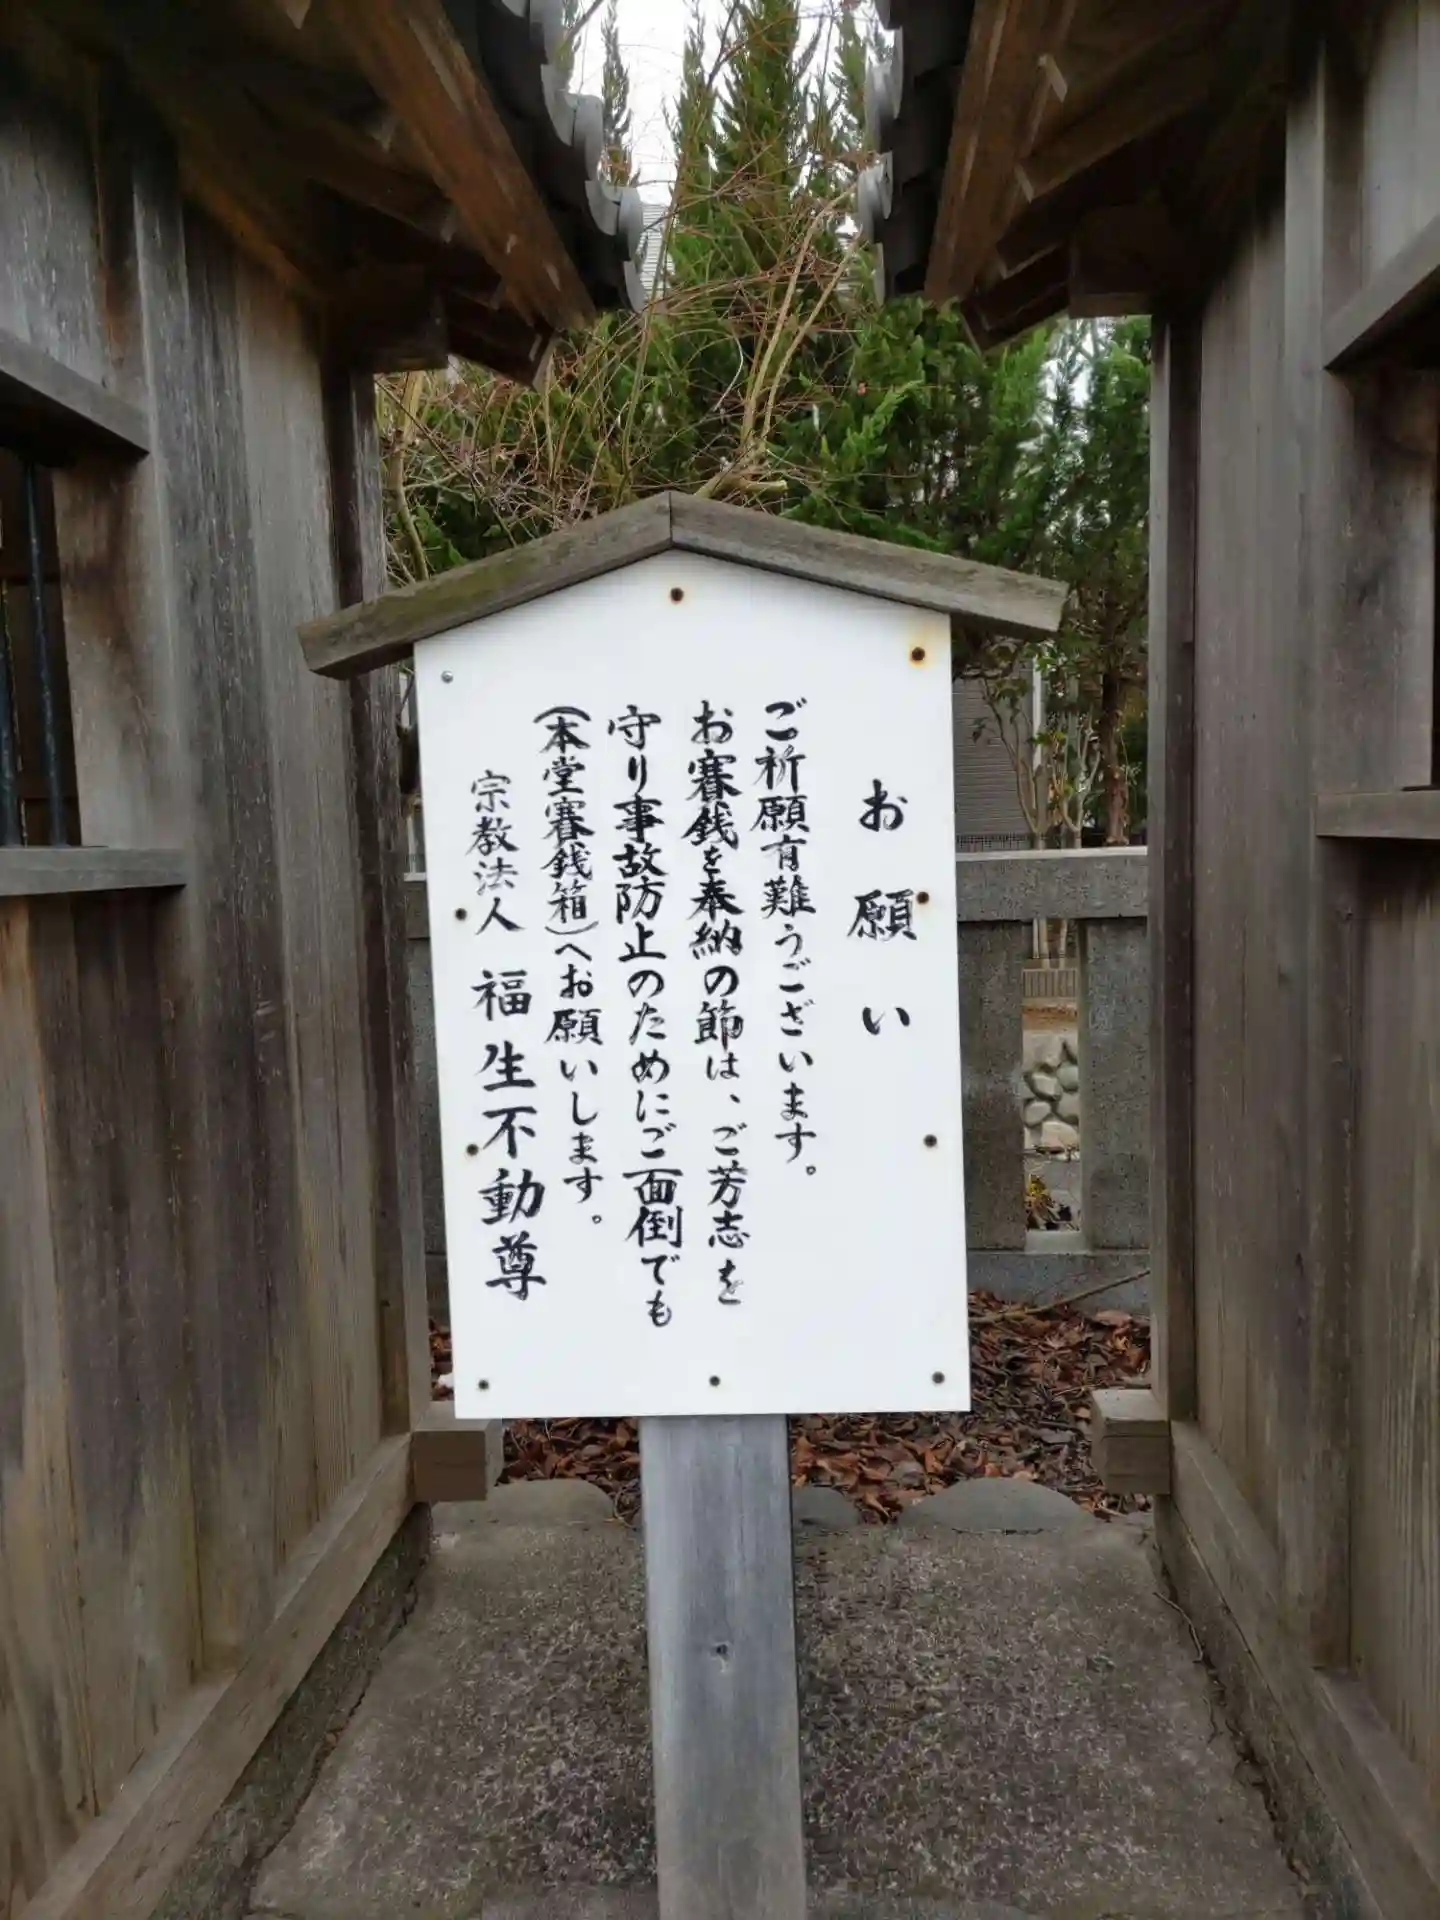 お願い
ご祈願有難うございます。
お賽銭を奉納の節は、ご芳志を
守り事故防止のためにご面倒でも
(本堂賽銭箱)へお願いします。
宗教法人 福生不動尊